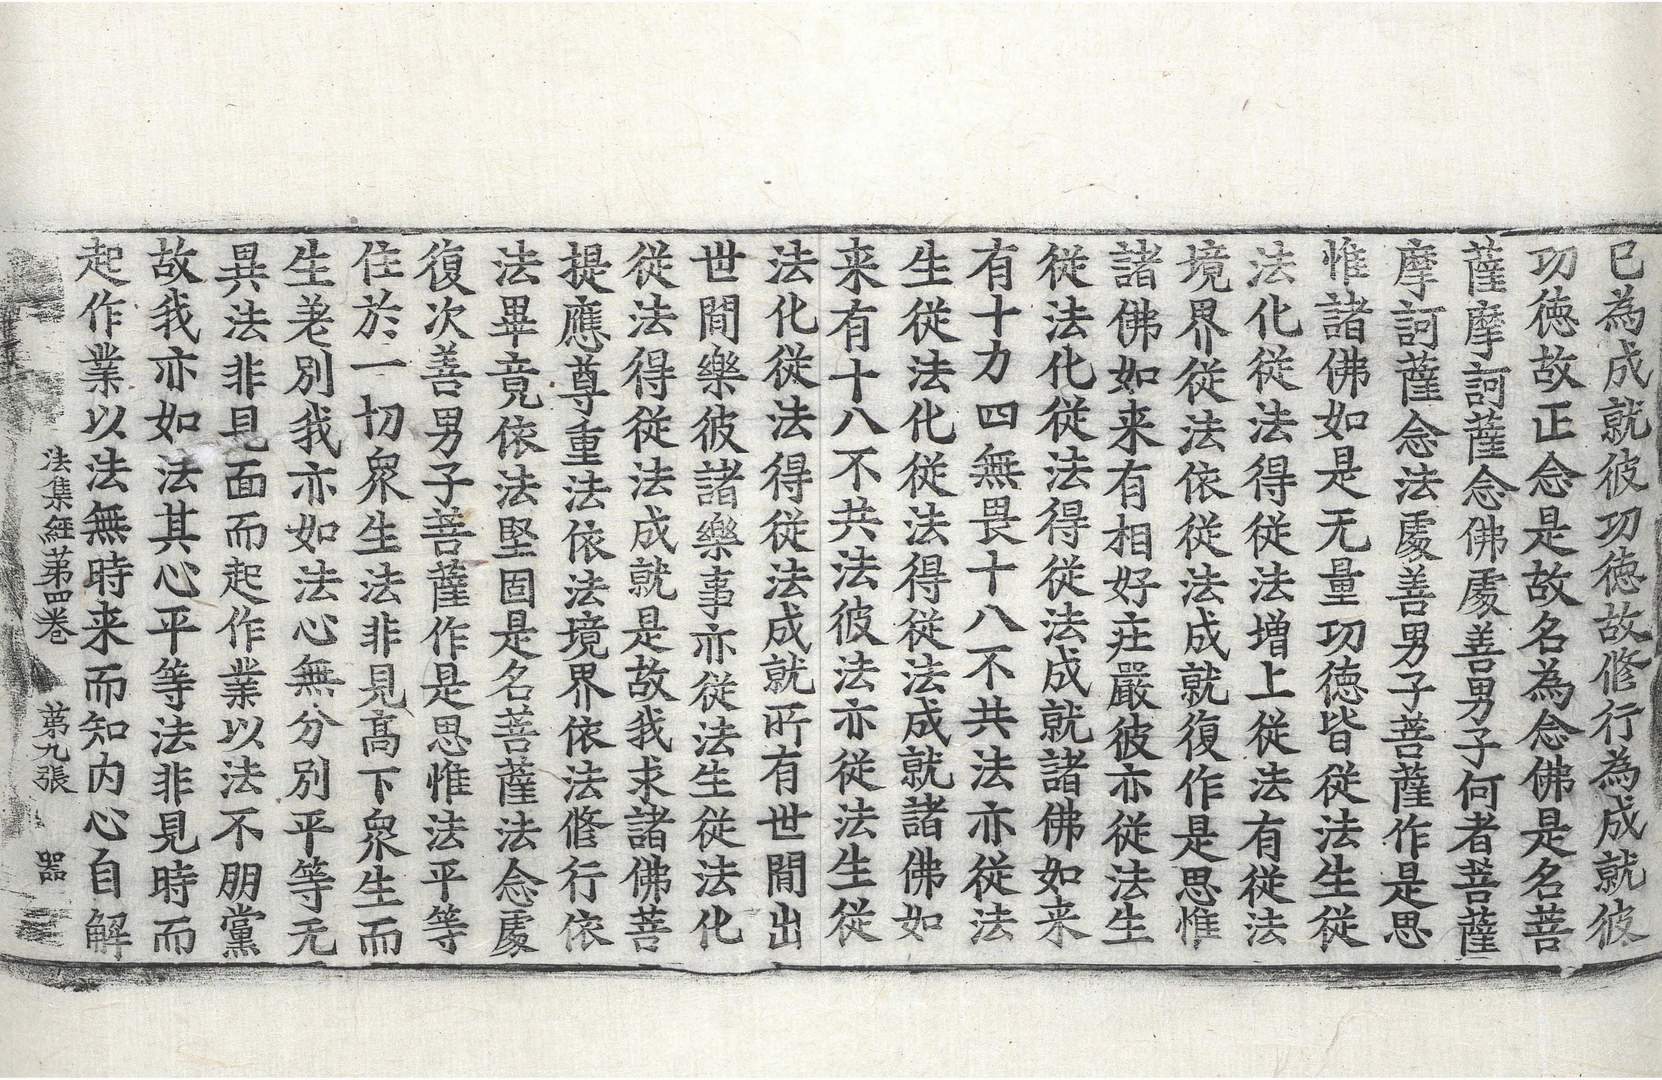 已為成就彼功徳故修行為成就彼
功徳故正念是故名為念佛是名菩
薩摩訶薩念佛處善男子何者菩薩
摩訶薩念法處善男子菩薩作是思
惟諸佛如是无量功徳皆從法生從
法化從法得從法増上從法有從法
境界從法依從法成就復作是思惟
諸佛如来有相好莊嚴彼亦從法生
從法化從法得從法成就諸佛如来
有十力四無畏十八不共法亦從法
生從法化從法得從法成就諸佛如
来有十八不共法彼法亦從法生從
法化從法得從法成就所有世間出
世間樂彼諸樂事亦從法生從法化
從法得從法成就是故我求諸佛菩
提應尊重法依法境界依法修行依
法畢竟依法堅固是名菩薩法念處
復次善男子菩薩作是思惟法平等
住於一切衆生法非見髙下衆生而
生差別我亦如法心無分別平等无
異法非見面而起作業以法不朋黨
故我亦如法其心平等法非見時而
起作業以法無時来而知内心自解
法集經第四卷　第九張　器